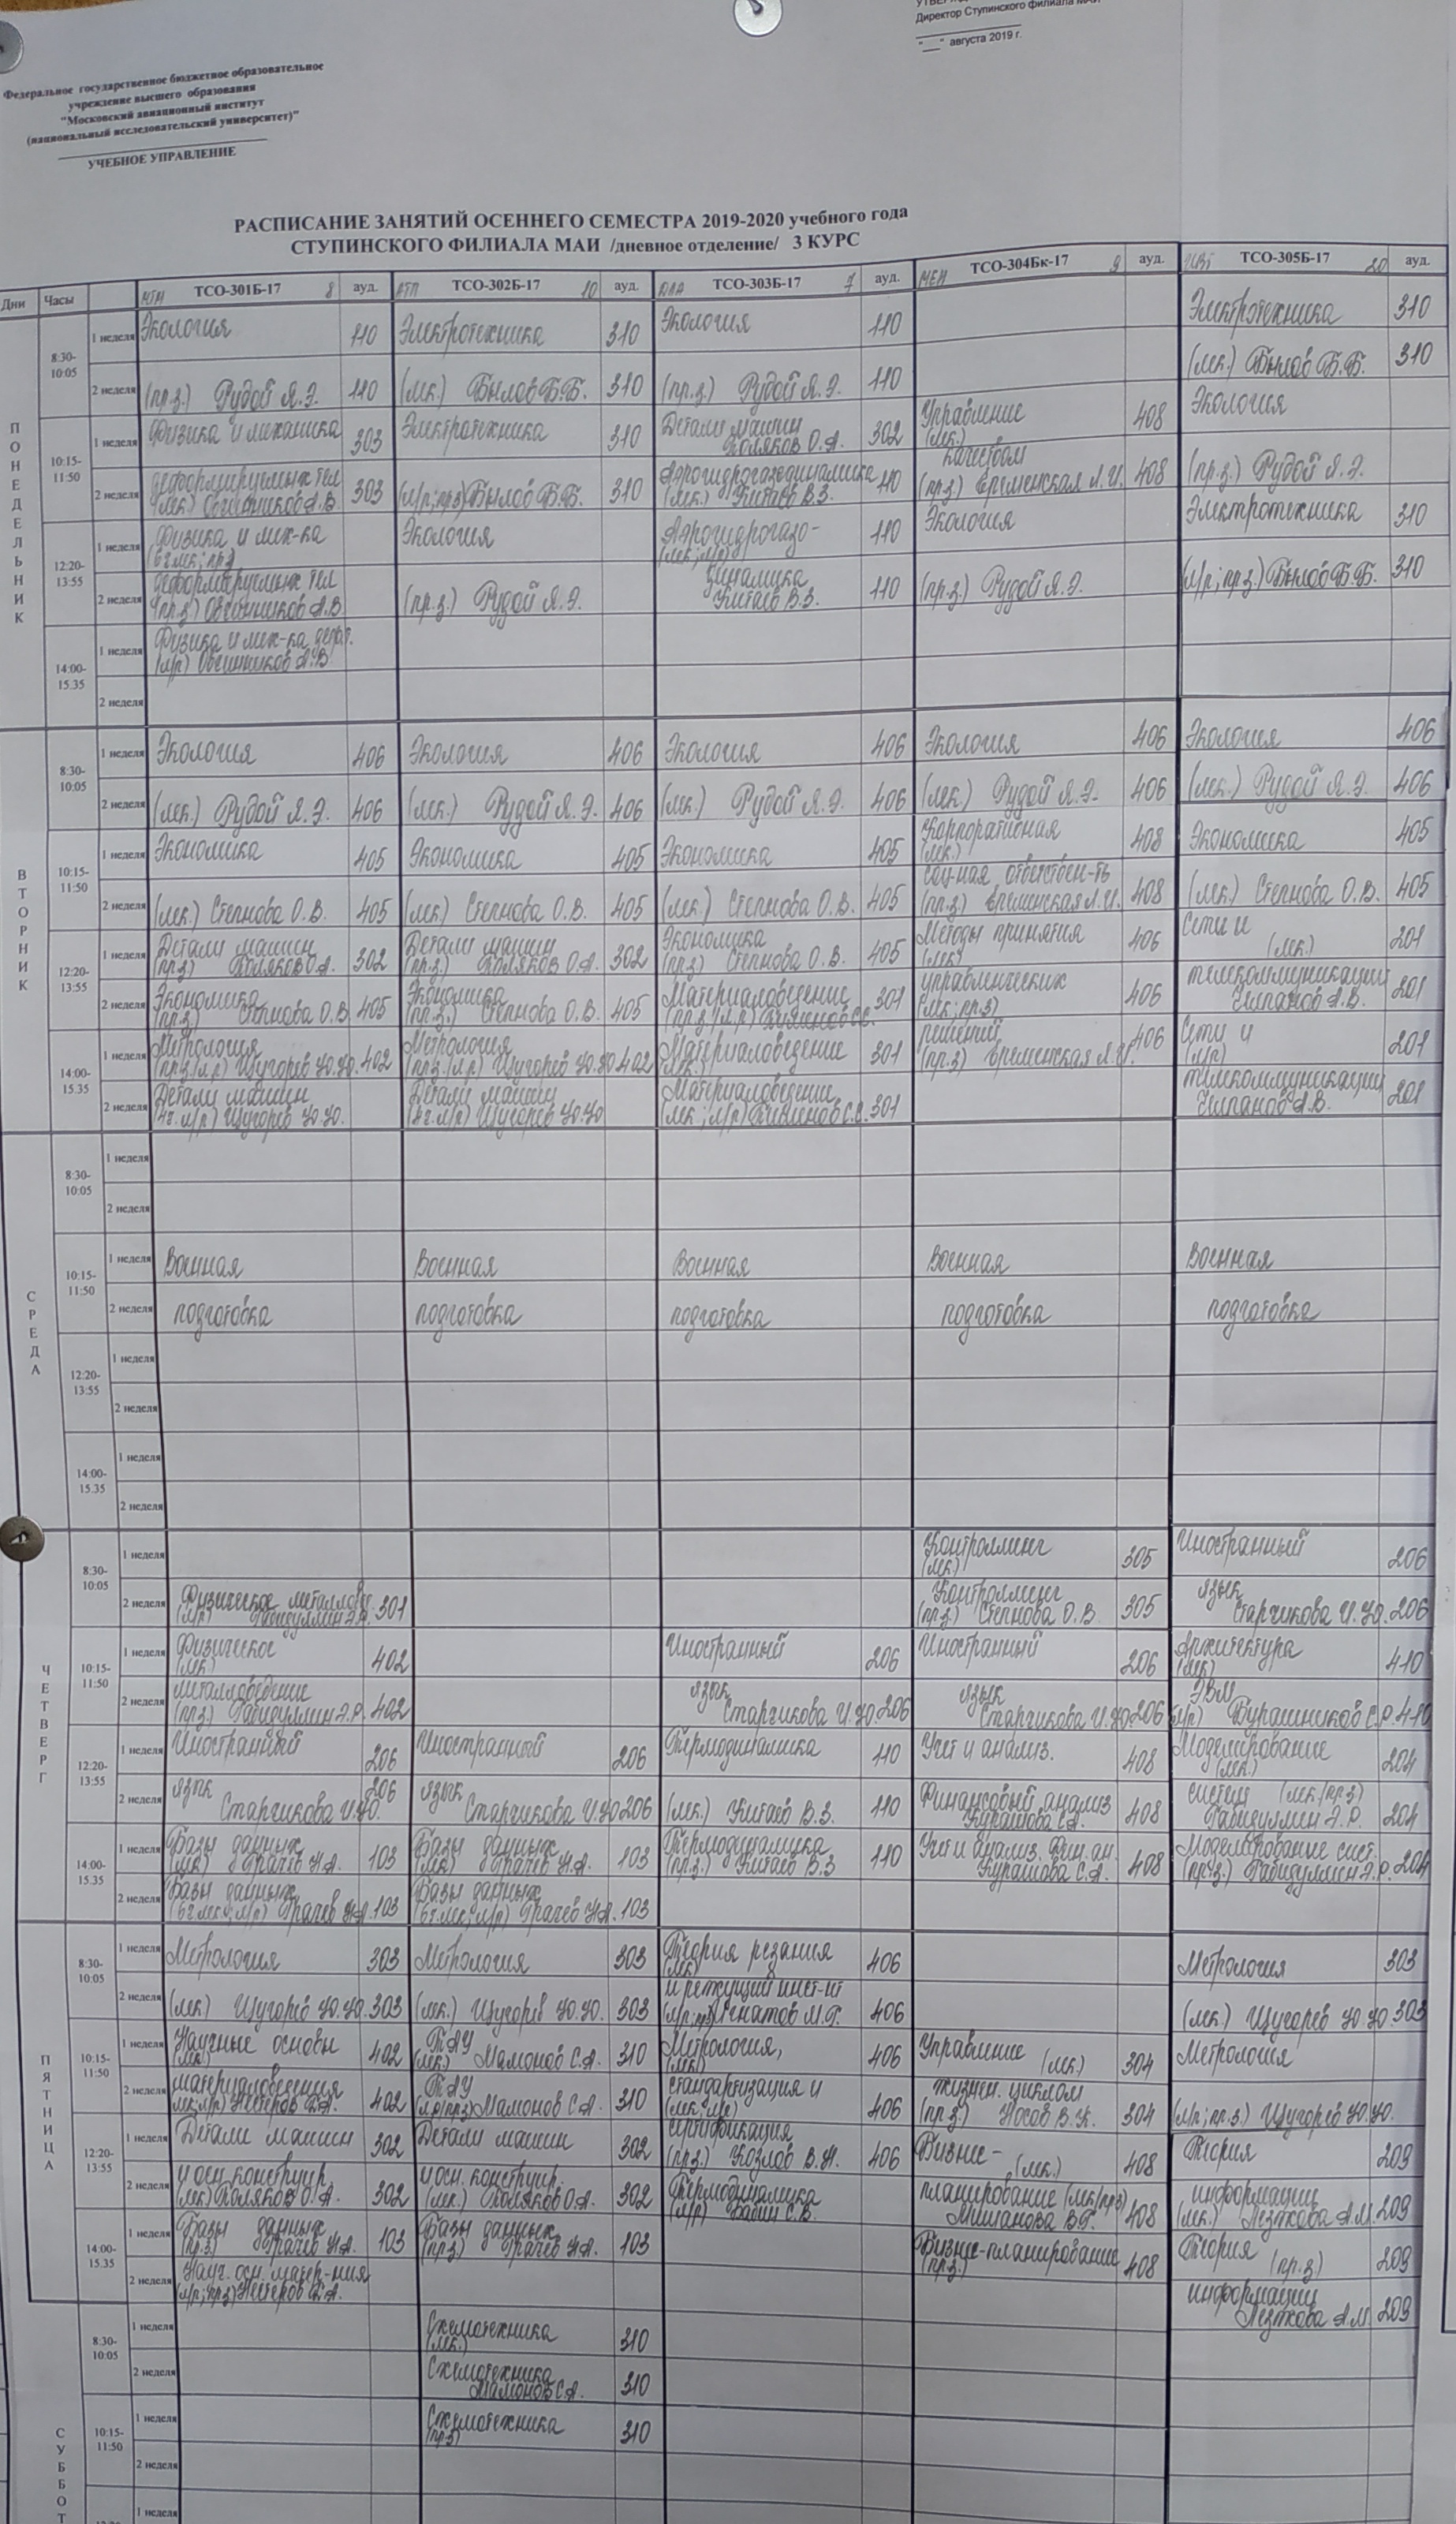 Директор Ступинского филиала МАИ
"___" августа 2019 г.
Федеральное государственное бюджетное образовательное
учреждение высшего образования
"Московский авиационный институт
(национальный исследовательский университет)"
УЧЕБНОЕ УПРАВЛЕНИЕ
РАСПИСАНИЕ ЗАНЯТИЙ ОСЕННЕГО СЕМЕСТРА 2019-2020 учебного года
СТУПИНСКОГО ФИЛИАЛА МАИ /дневное отделение/ 3 КУРС
Дни Часы ТСО-301Б-17 8 ауд. ТСО-302Б-17 10 ауд. ТСО-303Б-17 7 ауд. МЕН ТСО-304Бк-17 9 ауд. ТСО-305Б-17 20 ауд.
ПОНЕДЕЛЬНИК
8:30-10:05 1 неделя Экология 110 Электротехника 310 Экология 110 Электротехника 310
2 неделя (пр.з.) Рудой Я.Э. 110 (лек.) Былов Б.Б. 310 (пр.з.) Рудой Я.Э. 110 (лек.) Былов Б.Б. 310
10:15-11:50 1 неделя Физика и механика 303 Электротехника 310 Детали машин Поляков О.А. 302 Управление (лек.) 408 Экология
2 неделя деформируемых тел (лек) Овчинников А.В. 303 (л/р; пр.з) Былов Б.Б. 310 Аэрогидрогазодинамика (лек.) Китаев В.З. 110 качеством (пр.з) Еременская Л.И. 408 (пр.з.) Рудой Я.Э.
12:20-13:55 1 неделя Физика и мех-ка Экология Аэрогидрогазо- (лек; л/р) 110 Экология Электротехника 310
2 неделя деформируемых тел (пр.з) Овчинников А.В. (пр.з.) Рудой Я.Э. динамика Китаев В.З. 110 (пр.з.) Рудой Я.Э. (л/р; пр.з.) Былов Б.Б. 310
14:00-15.35 1 неделя Физика и мех-ка деф.т. (л/р) Овчинников А.В.
2 неделя
ВТОРНИК
8:30-10:05 1 неделя Экология 406 Экология 406 Экология 406 Экология 406 Экология 406
2 неделя (лек.) Рудой Я.Э. 406 (лек.) Рудой Я.Э. 406 (лек.) Рудой Я.Э. 406 (лек.) Рудой Я.Э. 406 (лек.) Рудой Я.Э. 406
10:15-11:50 1 неделя Экономика 405 Экономика 405 Экономика 405 Корпоративная (лек.) 408 Экономика 405
2 неделя (лек.) Степнова О.В. 405 (лек.) Степнова О.В. 405 (лек.) Степнова О.В. 405 соц-ная ответствен-ть (пр.з.) Еременская Л.И. 408 (лек.) Степнова О.В. 405
12:20-13:55 1 неделя Детали машин (пр.з) Поляков О.А. 302 Детали машин (пр.з.) Поляков О.А. 302 Экономика (пр.з) Степнова О.В. 405 Методы принятия (лек) 406 Сети и (лек.) 201
2 неделя Экономика (пр.з.) Степнова О.В. 405 Экономика (пр.з.) Степнова О.В. 405 Материаловедение (пр.з/л/р) 301 управленческих (лек; пр.з) 406 телекоммуникации А.В. 201
14:00-15.35 1 неделя Метрология (пр.з/л/р) Щугорев Ю.Ю. 402 Метрология (пр.з/л/р) Щугорев Ю.Ю 402 Материаловедение (лек.) 301 решений (пр.з) Еременская Л.И. 406 Сети и (л/р) 201
2 неделя Детали машин (4ч. л/р) Щугорев Ю.Ю. Детали машин (4ч. л/р) Щугорев Ю.Ю Материаловедение (лек.; л/р) 301 телекоммуникации А.В. 201
СРЕДА
8:30-10:05 1 неделя
2 неделя
10:15-11:50 1 неделя Военная Военная Военная Военная Военная
2 неделя подготовка подготовка подготовка подготовка подготовка
12:20-13:55 1 неделя
2 неделя
14:00-15.35 1 неделя
2 неделя
ЧЕТВЕРГ
8:30-10:05 1 неделя Контроллинг (лек.) 305 Иностранный 206
2 неделя Физическое металлов. (л/р) Габидуллин Э.Р. 301 Контроллинг (пр.з.) Степнова О.В. 305 язык Старчикова И.Ю. 206
10:15-11:50 1 неделя Физическое (лек.) 402 Иностранный 206 Иностранный 206 Архитектура (лек) 410
2 неделя металловедение (пр.з.) Габидуллин Э.Р. 402 язык Старчикова И.Ю. 206 язык Старчикова И.Ю. 206 ЭВМ (л/р) Бурашников С.Р. 410
12:20-13:55 1 неделя Иностранный 206 Иностранный 206 Термодинамика 110 Учет и анализ. 408 Моделирование (лек.) 204
2 неделя язык Старчикова И.Ю. 206 язык Старчикова И.Ю 206 (лек.) Китаев В.З. 110 Финансовый анализ Курашова С.А. 408 систем (лек/пр.з) Габидуллин Э.Р. 204
14:00-15.35 1 неделя Базы данных (лек) Грачев Н.А. 103 Базы данных (лек) Грачев Н.А. 103 Термодинамика (пр.з.) Китаев В.З 110 Учет и анализ. Фин. ан. Курашова С.А. 408 Моделирование сист. (пр.з.) Габидуллин Э.Р. 204
2 неделя Базы данных (6ч. лек; л/р) Грачев Н.А. 103 Базы данных (6ч. лек; л/р) Грачев Н.А. 103
ПЯТНИЦА
8:30-10:05 1 неделя Метрология 303 Метрология 303 Теория резания (лек) 406 Метрология 303
2 неделя (лек) Щугорев Ю.Ю. 303 (лек.) Щугорев Ю.Ю. 303 и режущий инст-нт Игнатов М.Г. 406 (лек.) Щугорев Ю.Ю. 303
10:15-11:50 1 неделя Научные основы (лек) 402 ТАУ (лек.) Мамонов С.А. 310 Метрология, (лек) 406 Управление (лек.) 304 Метрология
2 неделя материаловедения 402 ТАУ (л/р/пр.з) Мамонов С.А. 310 стандартизация и (лек; л/р) 406 жизнен. циклом (пр.з.) Носов В.К. 304 (л/р; пр.з.) Щугорев Ю.Ю.
12:20-13:55 1 неделя Детали машин 302 Детали машин 302 сертификация (пр.з.) Козлов В.И. 406 Бизнес- (лек.) 408 Теория 209
2 неделя и осн. конструир. (лек) Поляков О.А. 302 и осн. конструир. (лек.) Поляков О.А. 302 Термодинамика (л/р) Бабин С.В. планирование (лек/пр.з) 408 информации (лек.) А.М. 209
14:00-15.35 1 неделя Базы данных (пр.з) Грачев Н.А. 103 Базы данных (пр.з) Грачев Н.А. 103 Бизнес-планирование (пр.з.) 408 Теория (пр.з) 209
2 неделя Науч. осн. матер-ния (л/р; пр.з) информации А.М. 209
СУББОТ
8:30-10:05 1 неделя Схемотехника (лек.) 310
2 неделя Схемотехника Мамонов С.А. 310
10:15-11:50 1 неделя Схемотехника (пр.з) 310
2 неделя
1 неделя